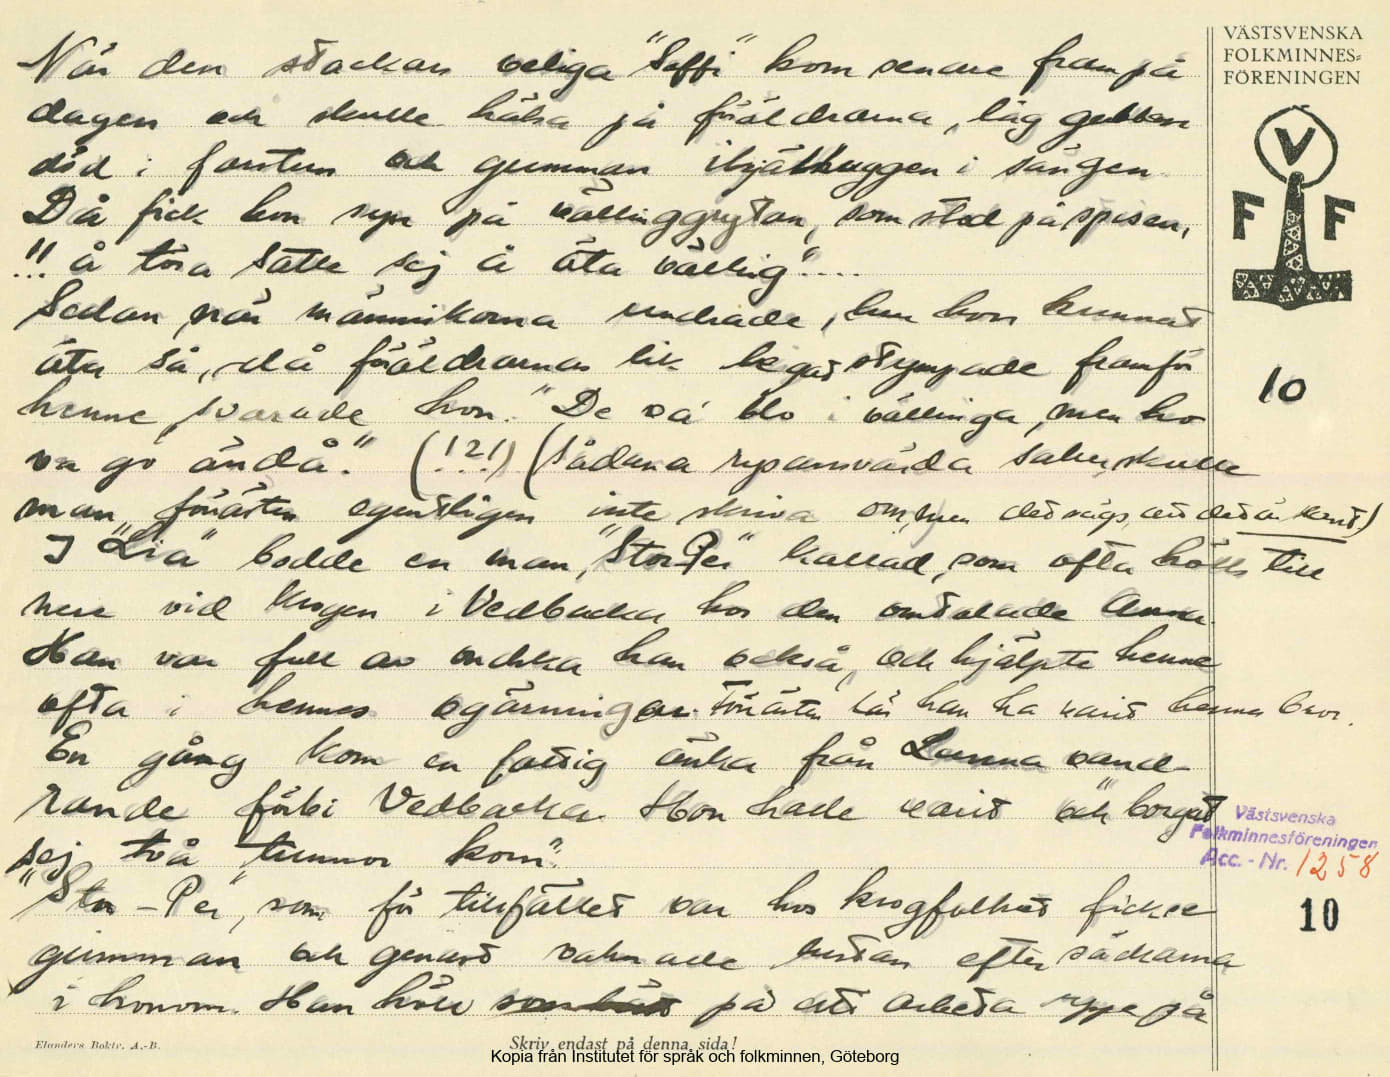 När den stackars veliga "Soffi" kom senare fram på
dagen och skulle hälsa på föräldrarna, låg gubben
död i farstun och gumman ihjälhuggen i sängen.
Då fick hon syn på vällinggrytan, som stod på spisen,
"!! å töra satte sej å äta välling"....
Sedan när människorna undrade, hur hon kunnat
äta så, då föräldrarnas lik legat stympade framför
henne svarade hon. "De va' blo i vällinga, men ho
va go ändå." (!?!) (Sådana rysansvärda saker, skulle
man förästen egentligen inte skriva om, men det sägs, att det är sant)
I "Lia" bodde en man, "Stor-Per" kallad, som ofta hölls till
nere vid krogen i Vedbacka hos den omtalade Anna.
Han var full av ondska han också, och hjälpte henne
ofta i hennes ogärningar. Förästen lär han ha varit hennes bror.
En gång kom en fattig änka från Lanna vand-
rande förbi Vedbacka. Hon hade varit och "borgat
sej två tunnor korn".
"Stor-Per", som för tillfället var hos krogfolket fick se
gumman och genast vaknade lustan efter sädearna
i honom. Han höll på att arbeta uppe på
VÄSTSVENSKA
FOLKMINNES-
FÖRENINGEN
V
F F
10
Västsvenska
Folkminnesföreningen
Acc. - Nr. 1258
10
Elanders Boktr. A.-B.
Skriv endast på denna sida!
Kopia från Institutet för språk och folkminnen, Göteborg